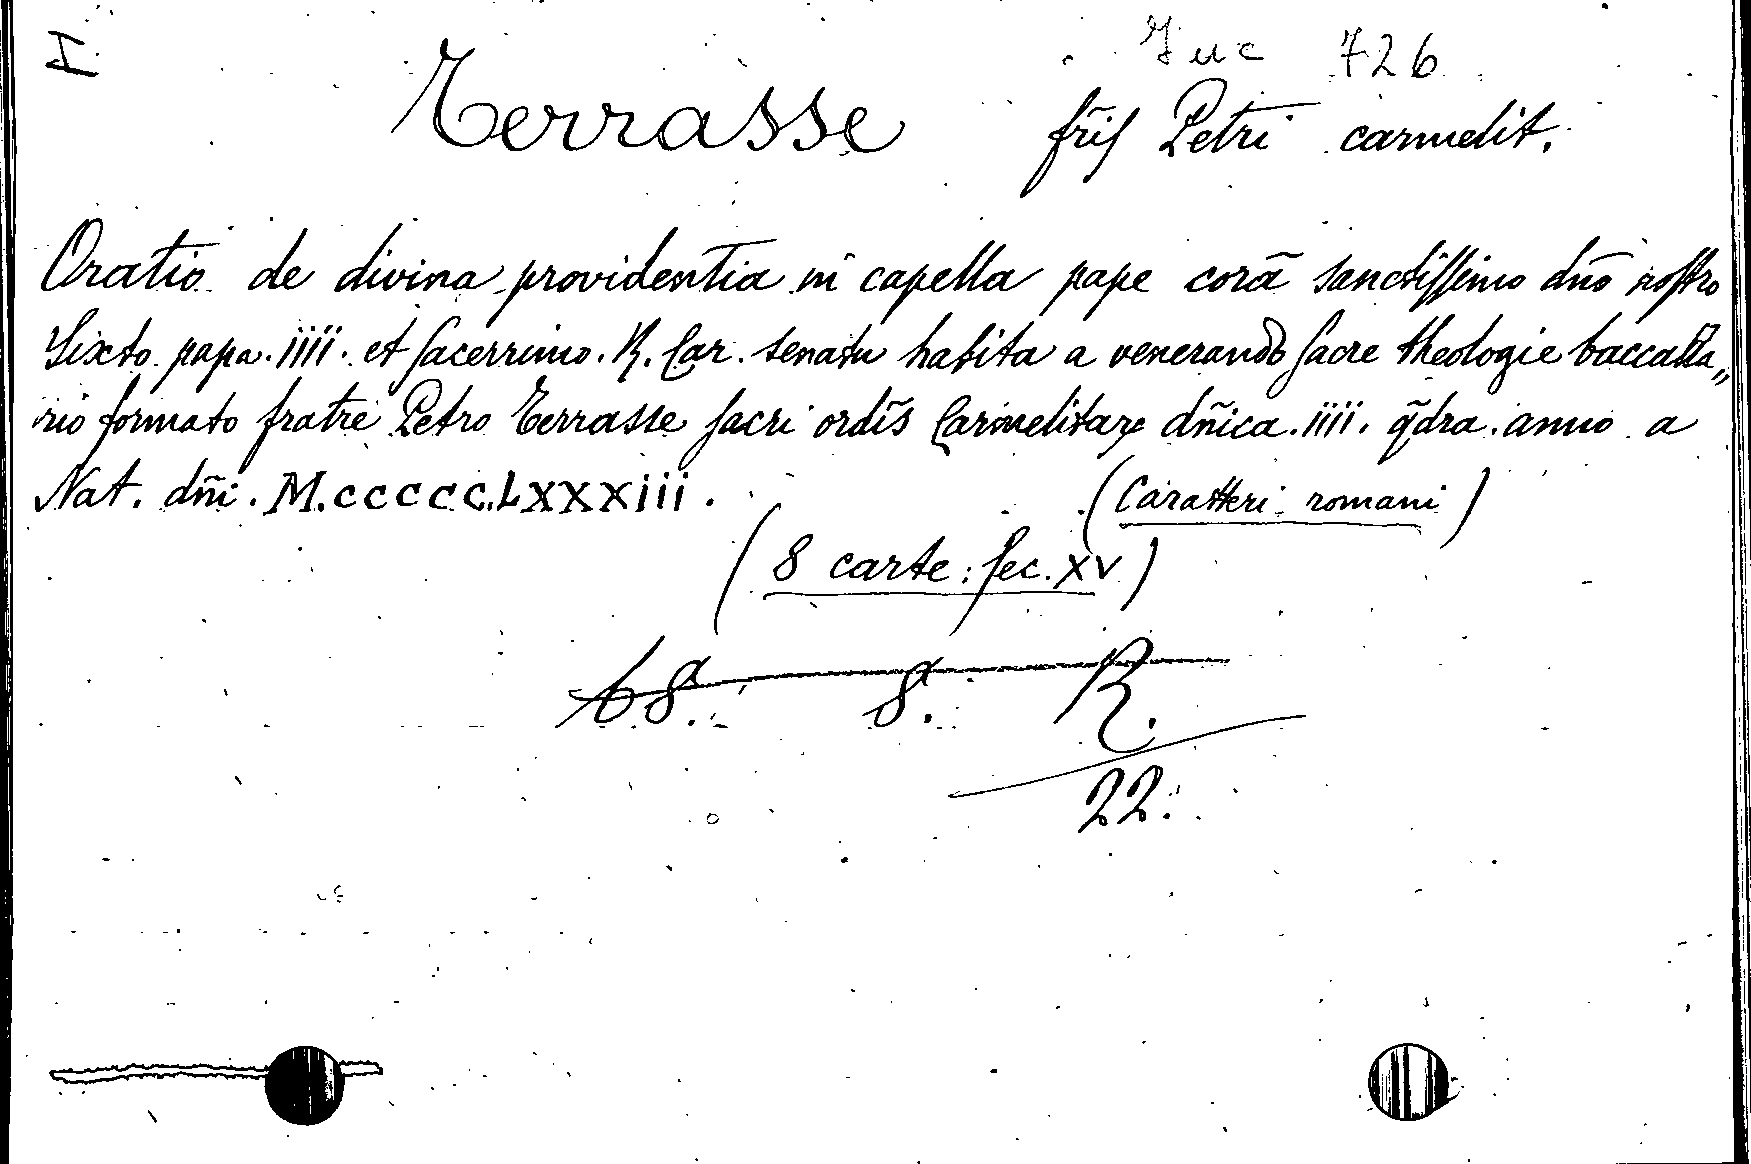 I
Inc 726
Terrasse frĩs Petri carmelit.
Oratio de divina providentia ĩ capella pape corã sanctissimo dño nostro
Sixto papa. iiii. et sacerrimo. R. Car. senatu habita a venerando sacre theologie baccalla„
rio formato fratre Petro Terrasse sacri ordĩs Carmelitaꝝ dñica. iiii. q̃dra. anno a
Nat. dñi. M.cccccLxxxiii.
(Caratteri romani)
(8 carte: sec. XV)
68. 8. R.
22.